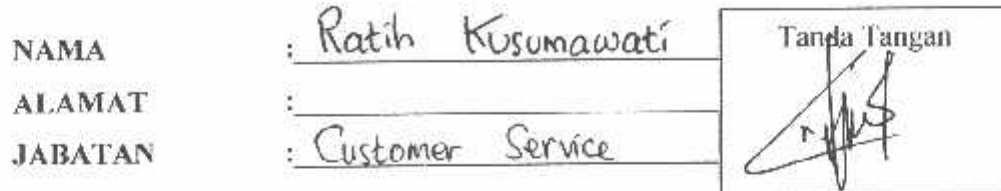 NAMA : Ratih Kusumawati
ALAMAT :
JABATAN : Customer Service
Tanda Tangan